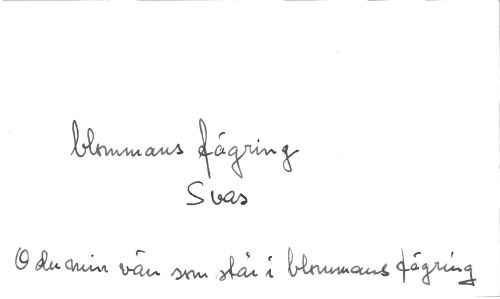 blommans fägring
Svas
O du min vän som står i blommans fägring